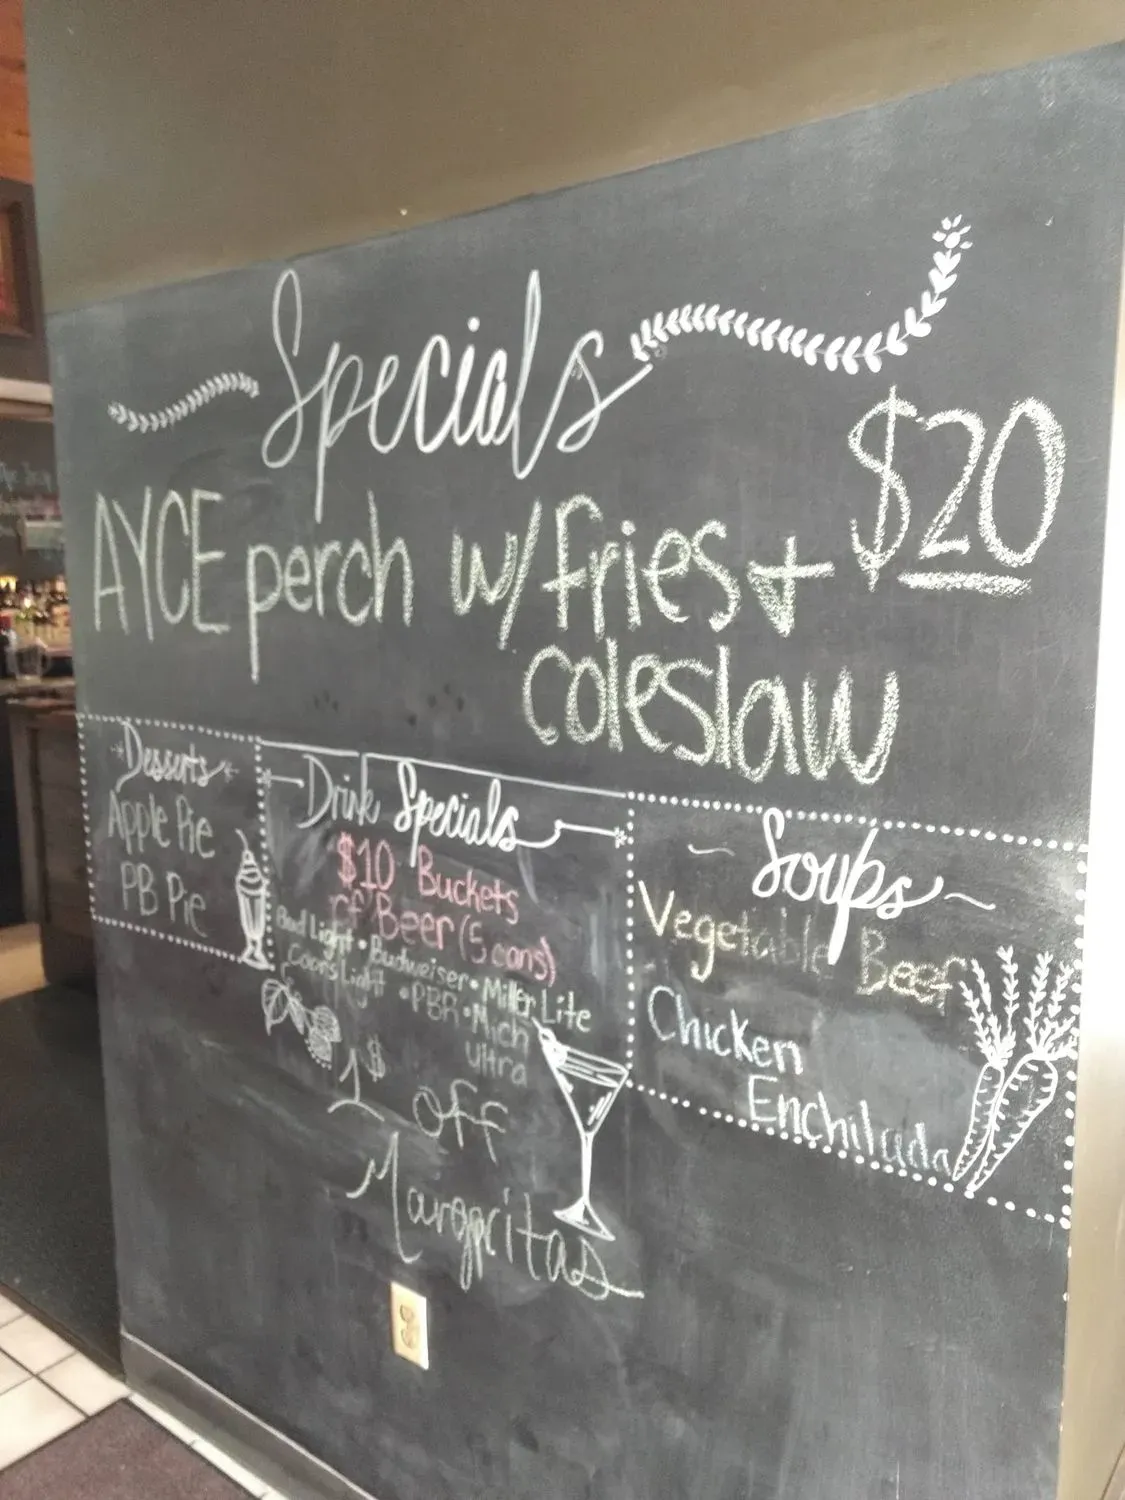 Specials
AYCE perch w/ fries +
coleslaw
$20
Desserts
Apple Pie
PB Pie
Drink Specials
$10 Buckets
of Beer (5 cans)
Bud Light • Budweiser • Miller Lite
Coors Light • PBR • Mich
Ultra
1$ off
Margaritas
Soups
Vegetable Beef
Chicken
Enchilada